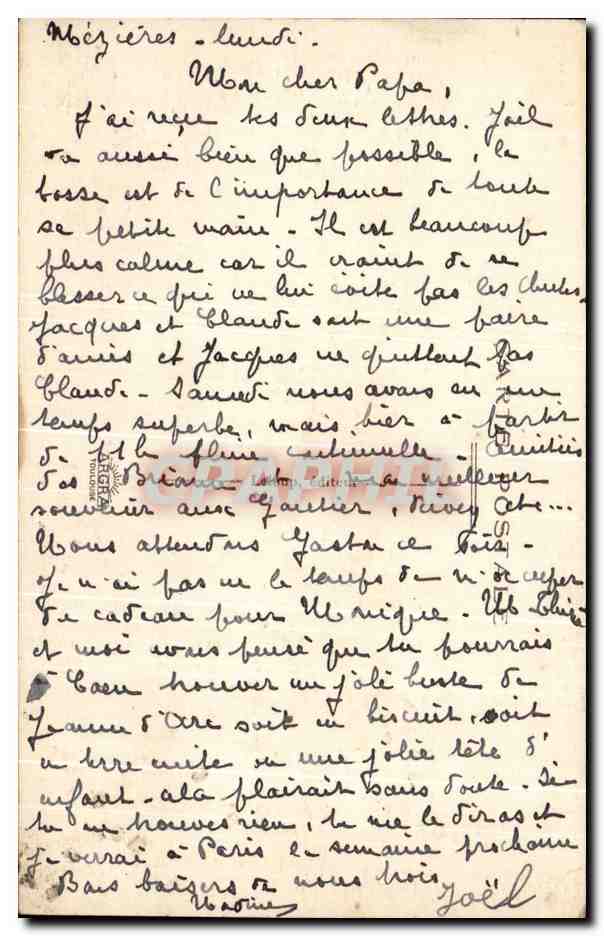 Mézières - lundi.
Mon cher Papa,
J'ai reçu tes deux lettres. Joël
va aussi bien que possible, la
bosse est de l'importance de toute
sa petite main - Il est beaucoup
plus calme car il craint de se
blesser ce qui ne lui évite pas les chutes.
Jacques et Claude sont une paire
d'amis et Jacques ne quittent pas
Claude - Samedi nous avons eu un
temps superbe, mais hier à partir
de 1h pluie continuelle - Amitiés
des Briand et meilleur
souvenir aux Gautier, etc...
Nous attendons Gaston ce soir -
Je n'ai pas eu le temps de m'occuper
de cadeau pour Monique - M
et moi avons pensé que tu pourrais
à Caen trouver un joli buste de
Jeanne d'Arc soit en biscuit, soit
en terre cuite ou une jolie tête d'
enfant - cela plairait sans doute. Si
tu ne trouves rien, tu me le diras et
je verrai à Paris la semaine prochaine
Bons baisers de nous trois
Joël
CARTE POSTALE
ARGRA
TOULOUSE
éditeur
CPAPHIL